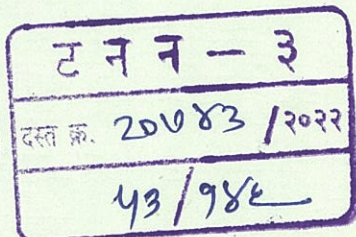 ट न न - ३
दस्त क्र. २०७४३ /२०२२
५३/१४६